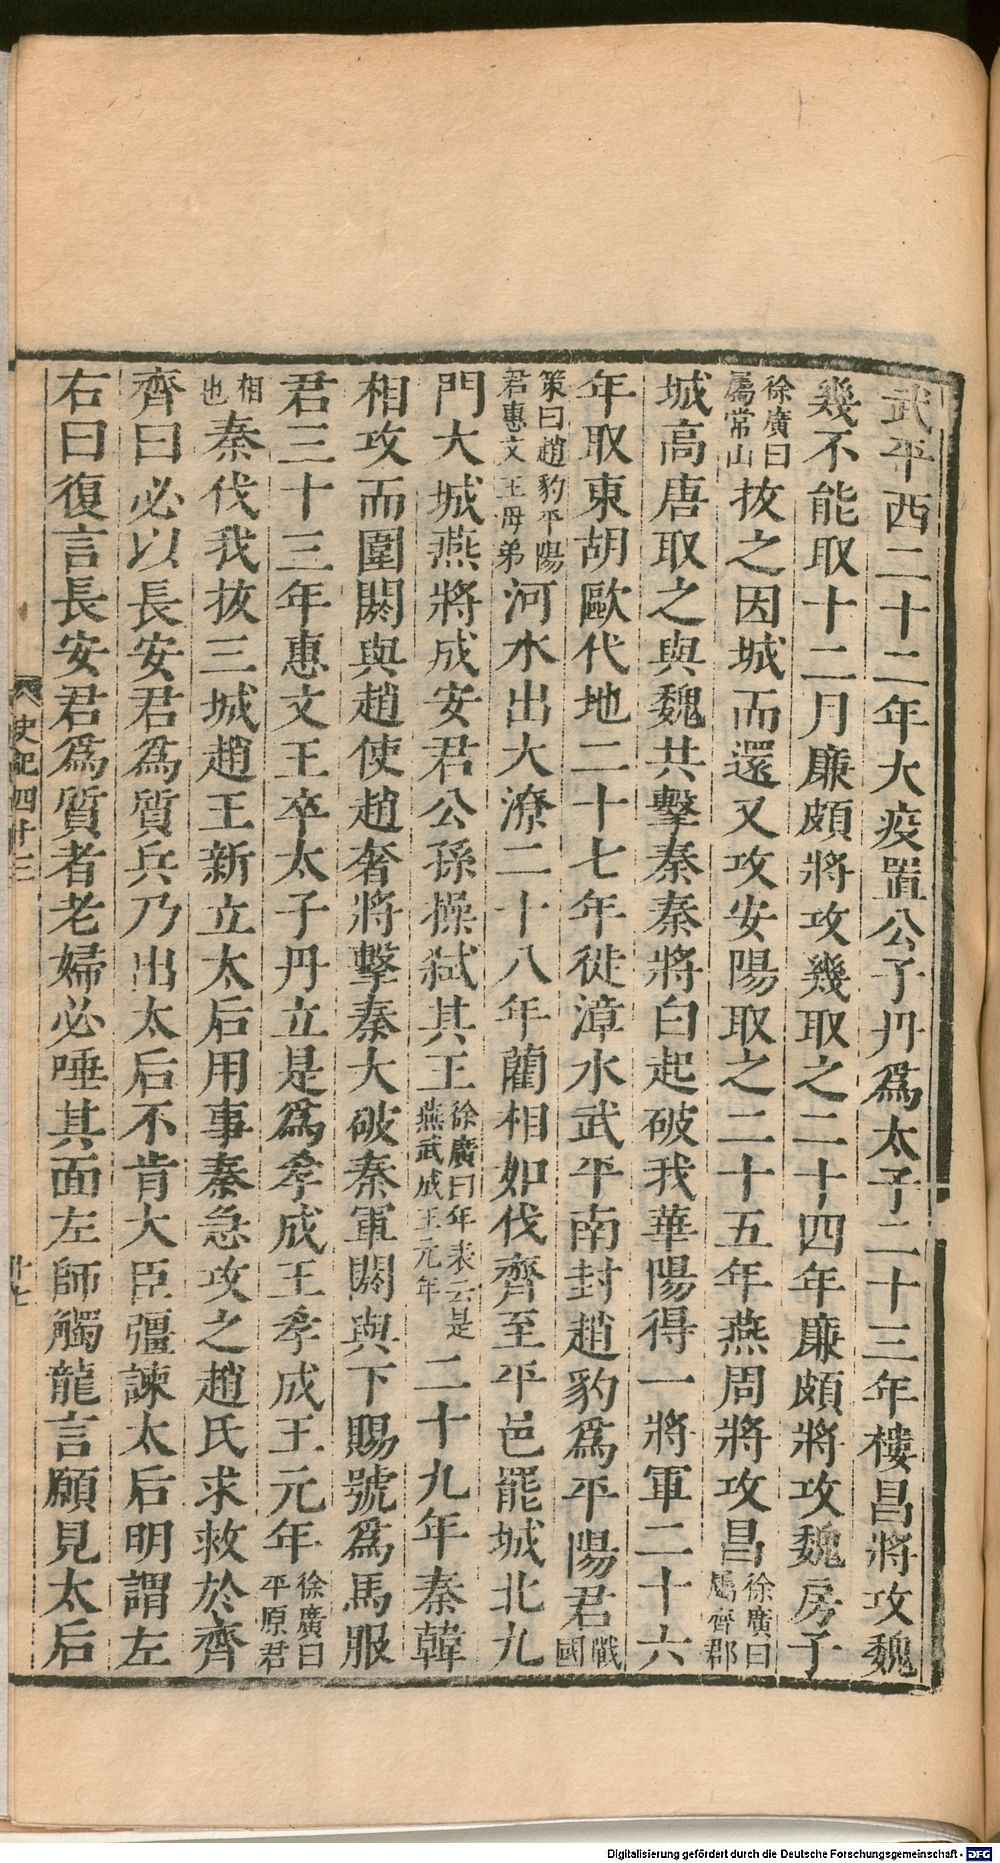 武平西二十二年大疫置公子丹爲太子二十三年樓昌將攻魏
幾不能取十二月廉頗將攻幾取之二十四年廉頗將攻魏房子
徐廣曰屬常山拔之因城而還又攻安陽取之二十五年燕周將攻昌徐廣曰屬齊郡
城高唐取之與魏共擊秦秦將白起破我華陽得一將軍二十六
年取東胡歐代地二十七年徙漳水武平南封趙豹爲平陽君戰國
策曰趙豹平陽君惠文王母弟河水出大潦二十八年藺相如伐齊至平邑罷城北九
門大城燕將成安君公孫操弑其王徐廣曰年表云是燕武成王元年二十九年秦韓
相攻而圍閼與趙使趙奢將擊秦大破秦軍閼與下賜號爲馬服
君三十三年惠文王卒太子丹立是爲孝成王孝成王元年徐廣曰平原君
相也秦伐我拔三城趙王新立太后用事秦急攻之趙氏求救於齊
齊曰必以長安君爲質兵乃出太后不肯大臣彊諫太后明謂左
右曰復言長安君爲質者老婦必唾其面左師觸龍言願見太后
史記四十三
廿七
Digitalisierung gefördert durch die Deutsche Forschungsgemeinschaft - DFG